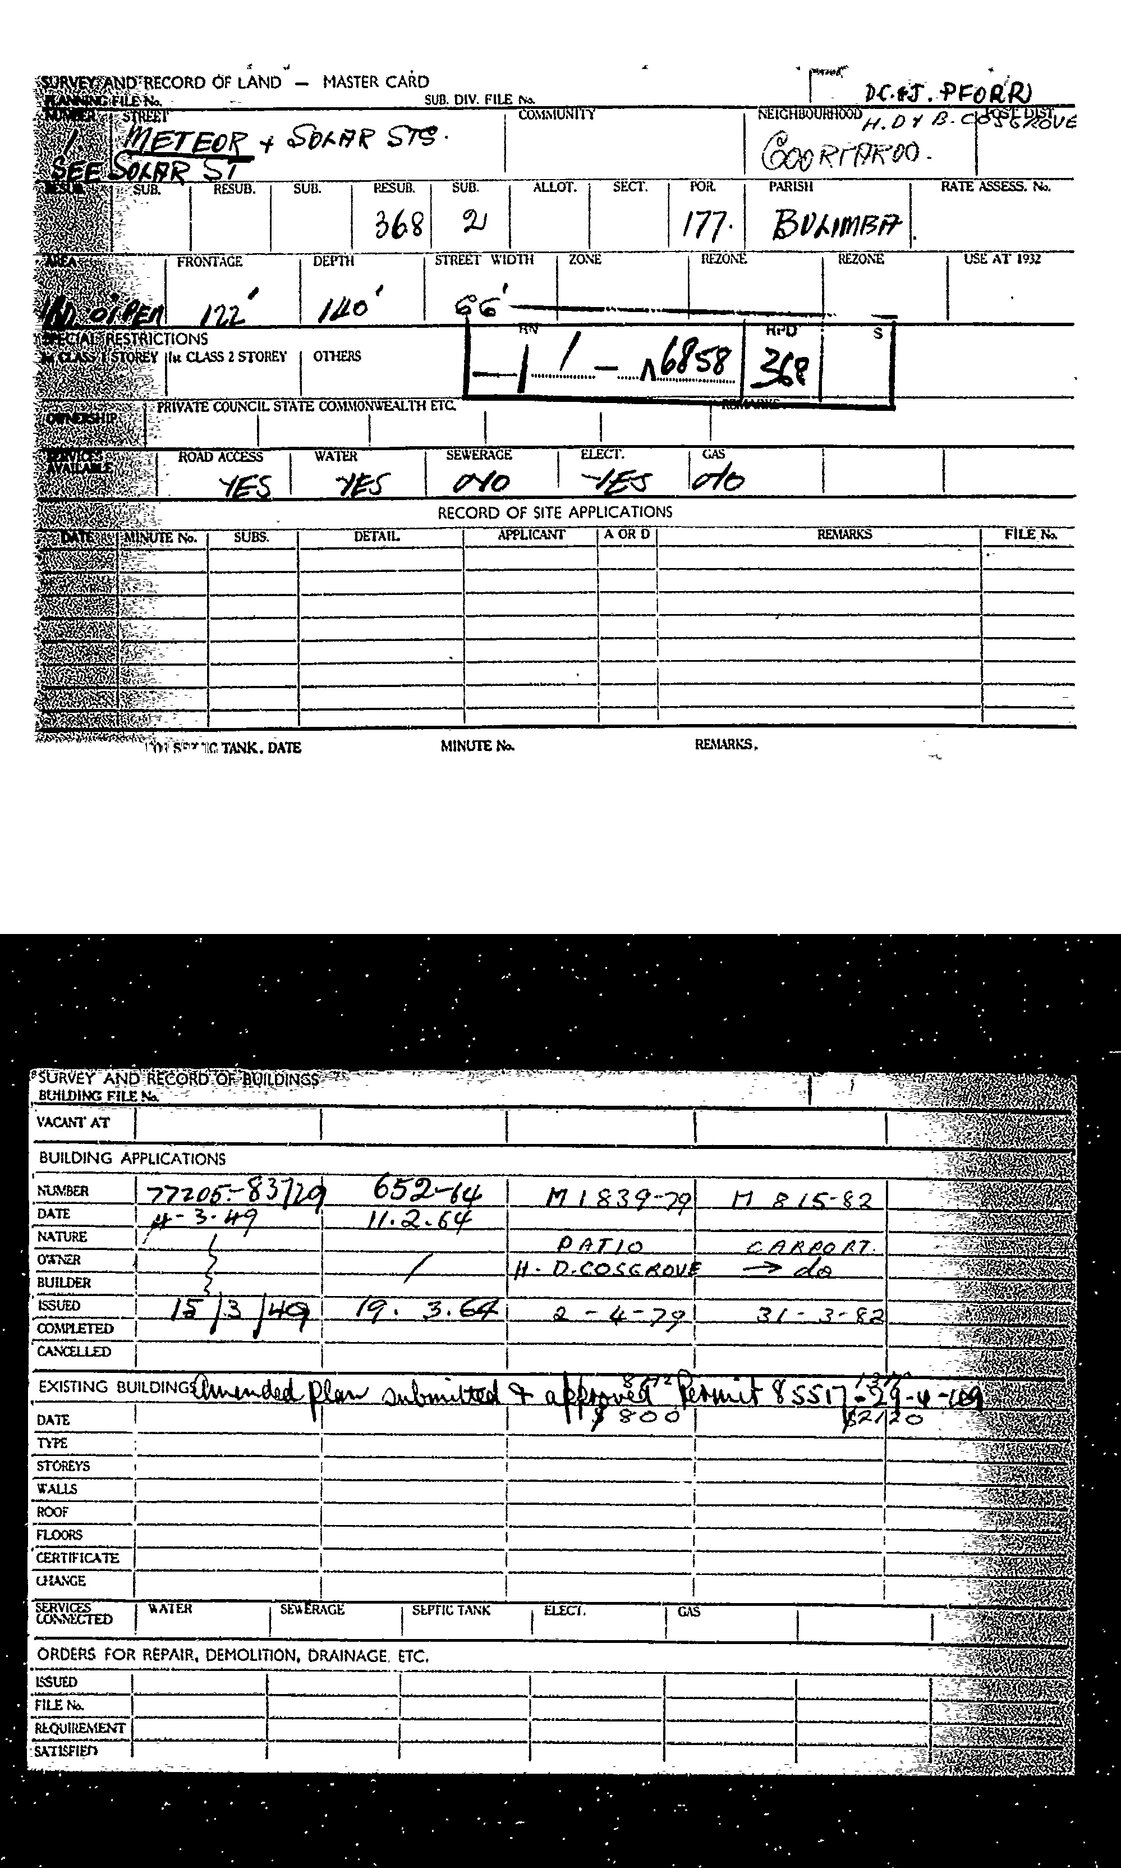 SURVEY AND RECORD OF LAND — MASTER CARD
PLANNING FILE No. SUB. DIV. FILE No. D.C. & J. PFORR
NUMBER STREET COMMUNITY NEIGHBOURHOOD POST DIST.
H. D & B. COSGROVE
1 METEOR & SOLAR STS.
SEE SOLAR ST
RESUB. SUB. RESUB. SUB. RESUB. SUB. ALLOT. SECT. POR. PARISH RATE ASSESS. No.
368 2 177. BULIMBA
AREA FRONTAGE DEPTH STREET WIDTH ZONE REZONE REZONE USE AT 1932
122' 140' 66'
SPECIAL RESTRICTIONS RN RPD S
1st CLASS 1 STOREY 1st CLASS 2 STOREY OTHERS
1 — 6858 368
OWNERSHIP PRIVATE COUNCIL STATE COMMONWEALTH ETC. REMARKS
SERVICES AVAILABLE ROAD ACCESS WATER SEWERAGE ELECT. GAS
YES YES NO YES NO
RECORD OF SITE APPLICATIONS
DATE MINUTE No. SUBS. DETAIL APPLICANT A OR D REMARKS FILE No.
SEPTIC TANK. DATE MINUTE No. REMARKS.
SURVEY AND RECORD OF BUILDINGS
BUILDING FILE No.
VACANT AT
BUILDING APPLICATIONS
NUMBER 77205-83729 652-64 M1839-79 M 815-82
DATE 4-3-49 11.2.64
NATURE PATIO CARPORT.
OWNER H. D. COSGROVE → do
BUILDER
ISSUED 15/3/49 19. 3.64 2-4-79 31-3-82
COMPLETED
CANCELLED
EXISTING BUILDINGS Amended plan submitted & approved Permit 85517-29-4-49
DATE $800 $2120
TYPE
STOREYS
WALLS
ROOF
FLOORS
CERTIFICATE
CHANGE
SERVICES CONNECTED WATER SEWERAGE SEPTIC TANK ELECT. GAS
ORDERS FOR REPAIR, DEMOLITION, DRAINAGE. ETC.
ISSUED
FILE No.
REQUIREMENT
SATISFIED